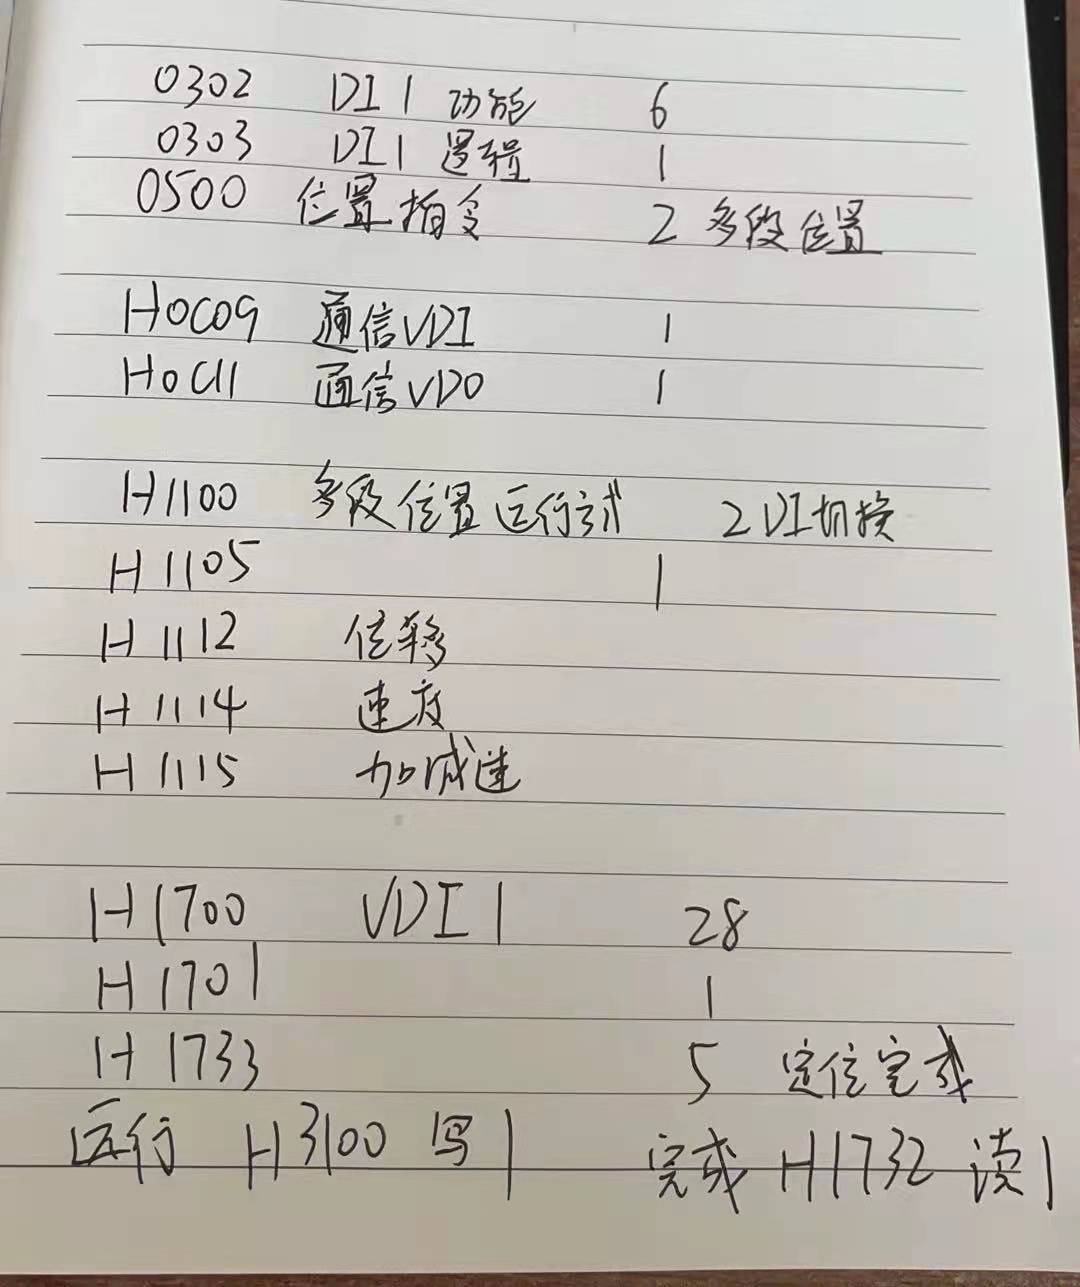 0302 DI1 功能 6
0303 DI1 逻辑 1
0500 位置指令 2 多段位置
H0C09 通信VDI 1
H0C11 通信VDO 1
H1100 多段位置运行方式 2 DI切换
H1105 1
H1112 位移
H1114 速度
H1115 加减速
H1700 VDI1 28
H1701 1
H1733 5 定位完成
运行 H3100 写1 完成 H1732 读1